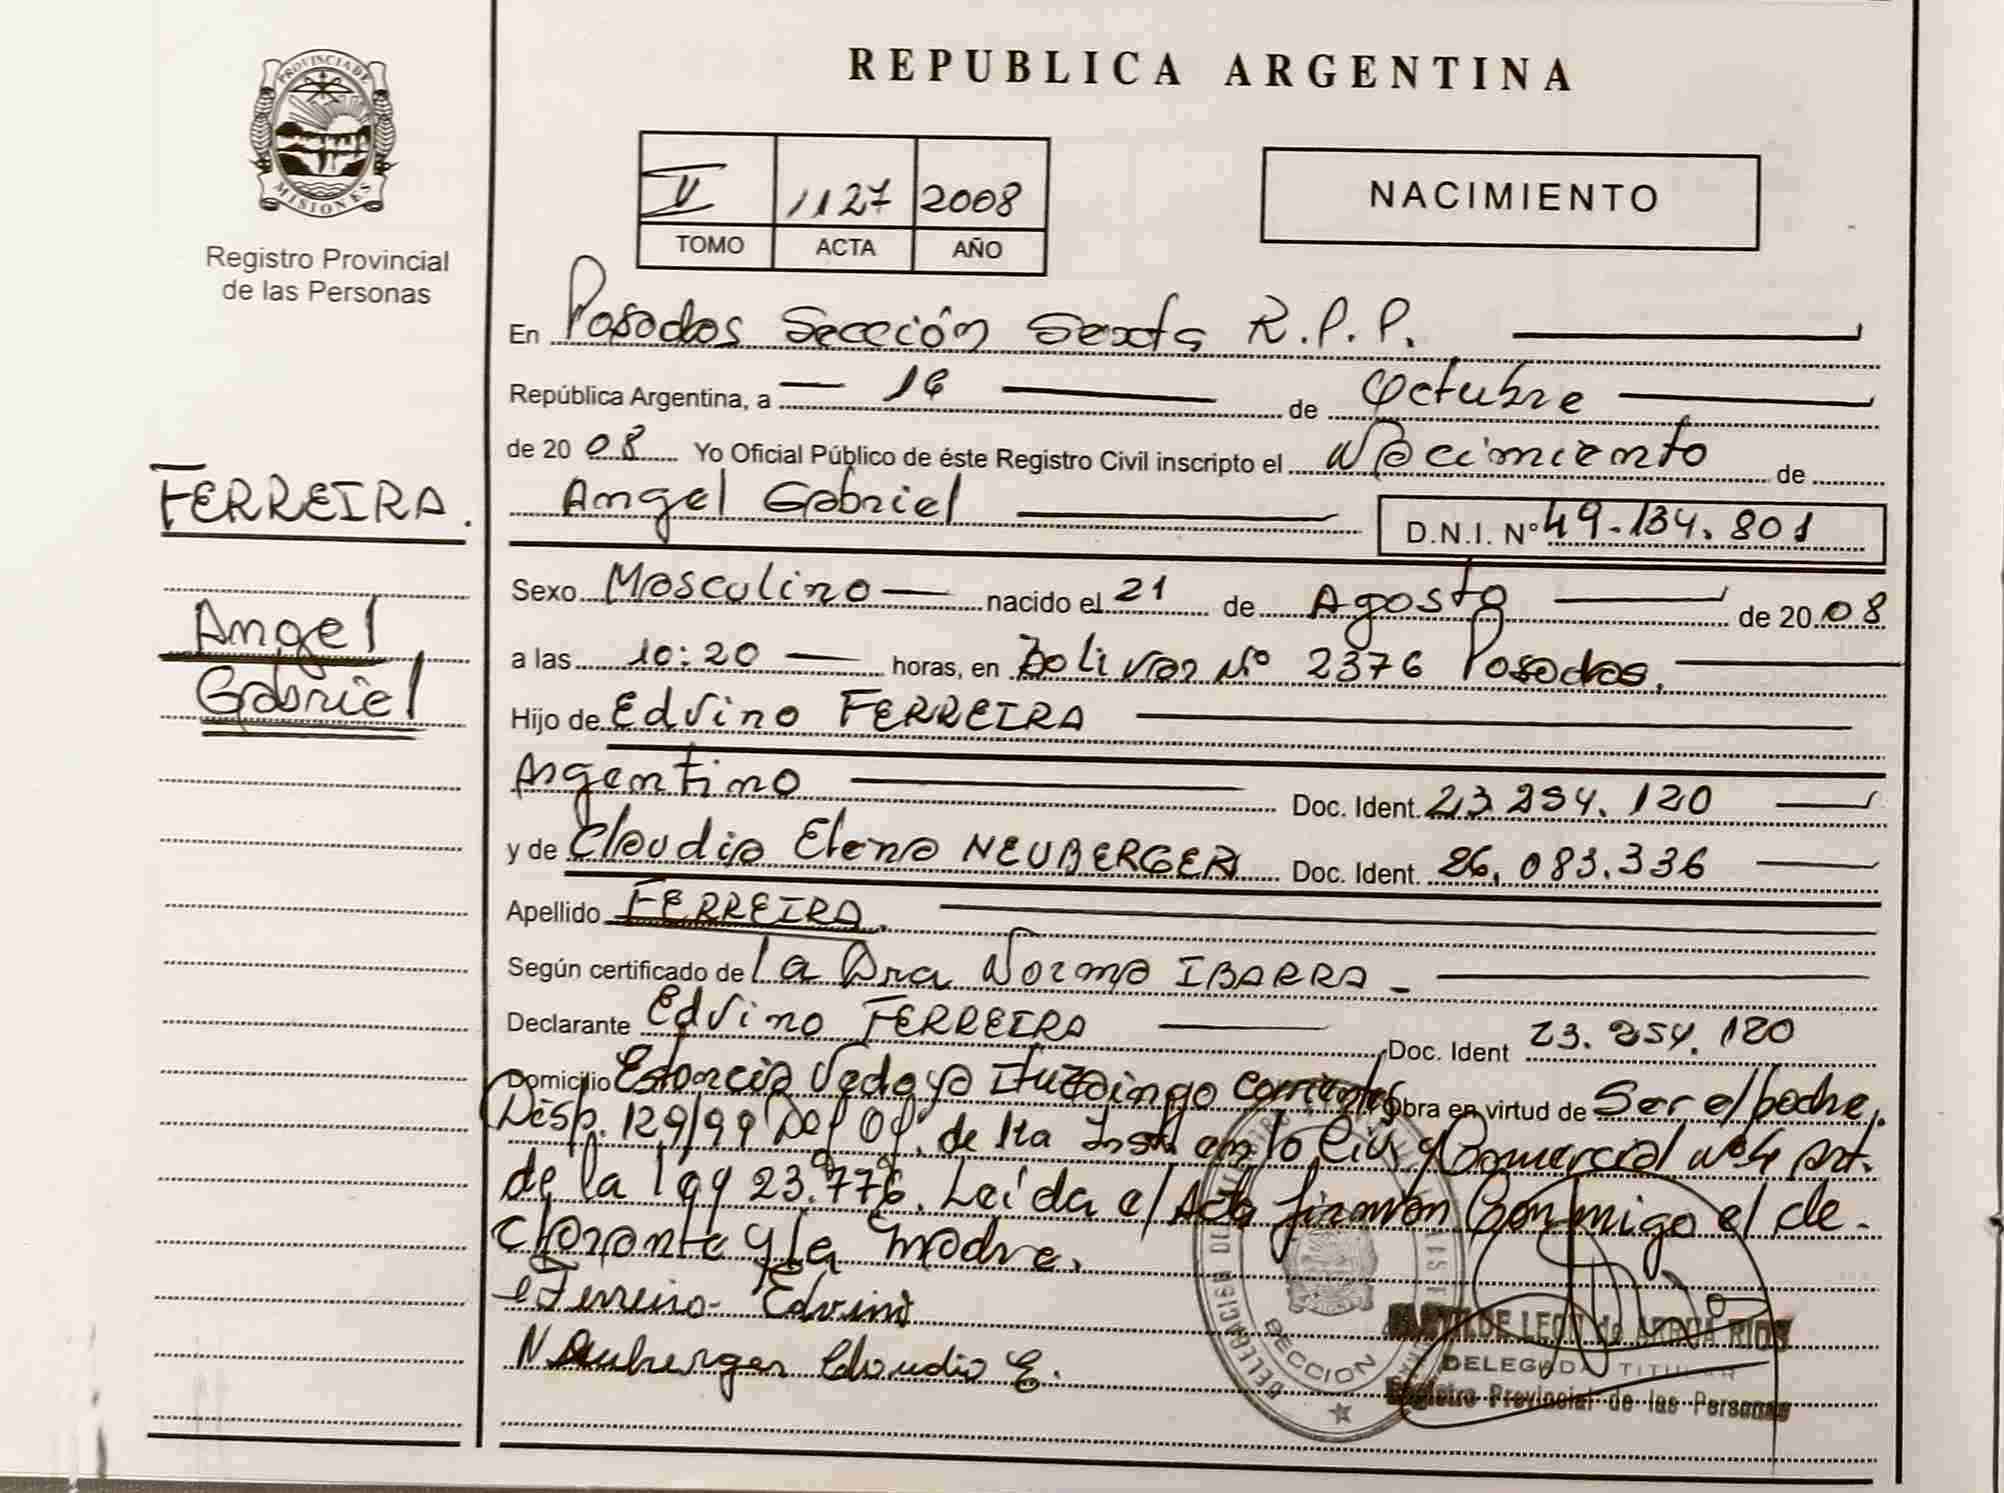 REPUBLICA ARGENTINA
PROVINCIA DE
MISIONES
Registro Provincial
de las Personas
1127 2008
TOMO ACTA AÑO
NACIMIENTO
En Posadas Sección Sexta R.P.P.
República Argentina, a 16 de Octubre
de 2008 Yo Oficial Público de éste Registro Civil inscripto el Nacimiento de
FERREIRA.
Angel
Gabriel
Angel Gabriel D.N.I. Nº 49.134.801
Sexo Masculino nacido el 21 de Agosto de 2008
a las 10:20 horas, en Bolivar Nº 2376 Posadas.
Hijo de Edvino FERREIRA
Argentino Doc. Ident. 23.254.120
y de Claudia Elena NEUBERGER Doc. Ident. 26.083.336
Apellido FERREIRA.
Según certificado de la Dra Norma IBARRA -
Declarante Edvino FERREIRA Doc. Ident 23.254.120
Domicilio Estancia Vedoya Ituzaingo Corrientes Obra en virtud de Ser el padre.
Disp. 129/99 de 1ra Inst en lo Civ. y Comercial Nº4 Art.
de la ley 23.776. Leída el Acta firman Conmigo el de-
clarante y la madre.
Ferreira Edvino
Neuberger Claudia E.
DELEGACION
SECCION
MATILDE LEON de ARROA RIOS
DELEGADA TITULAR
Registro Provincial de las Personas